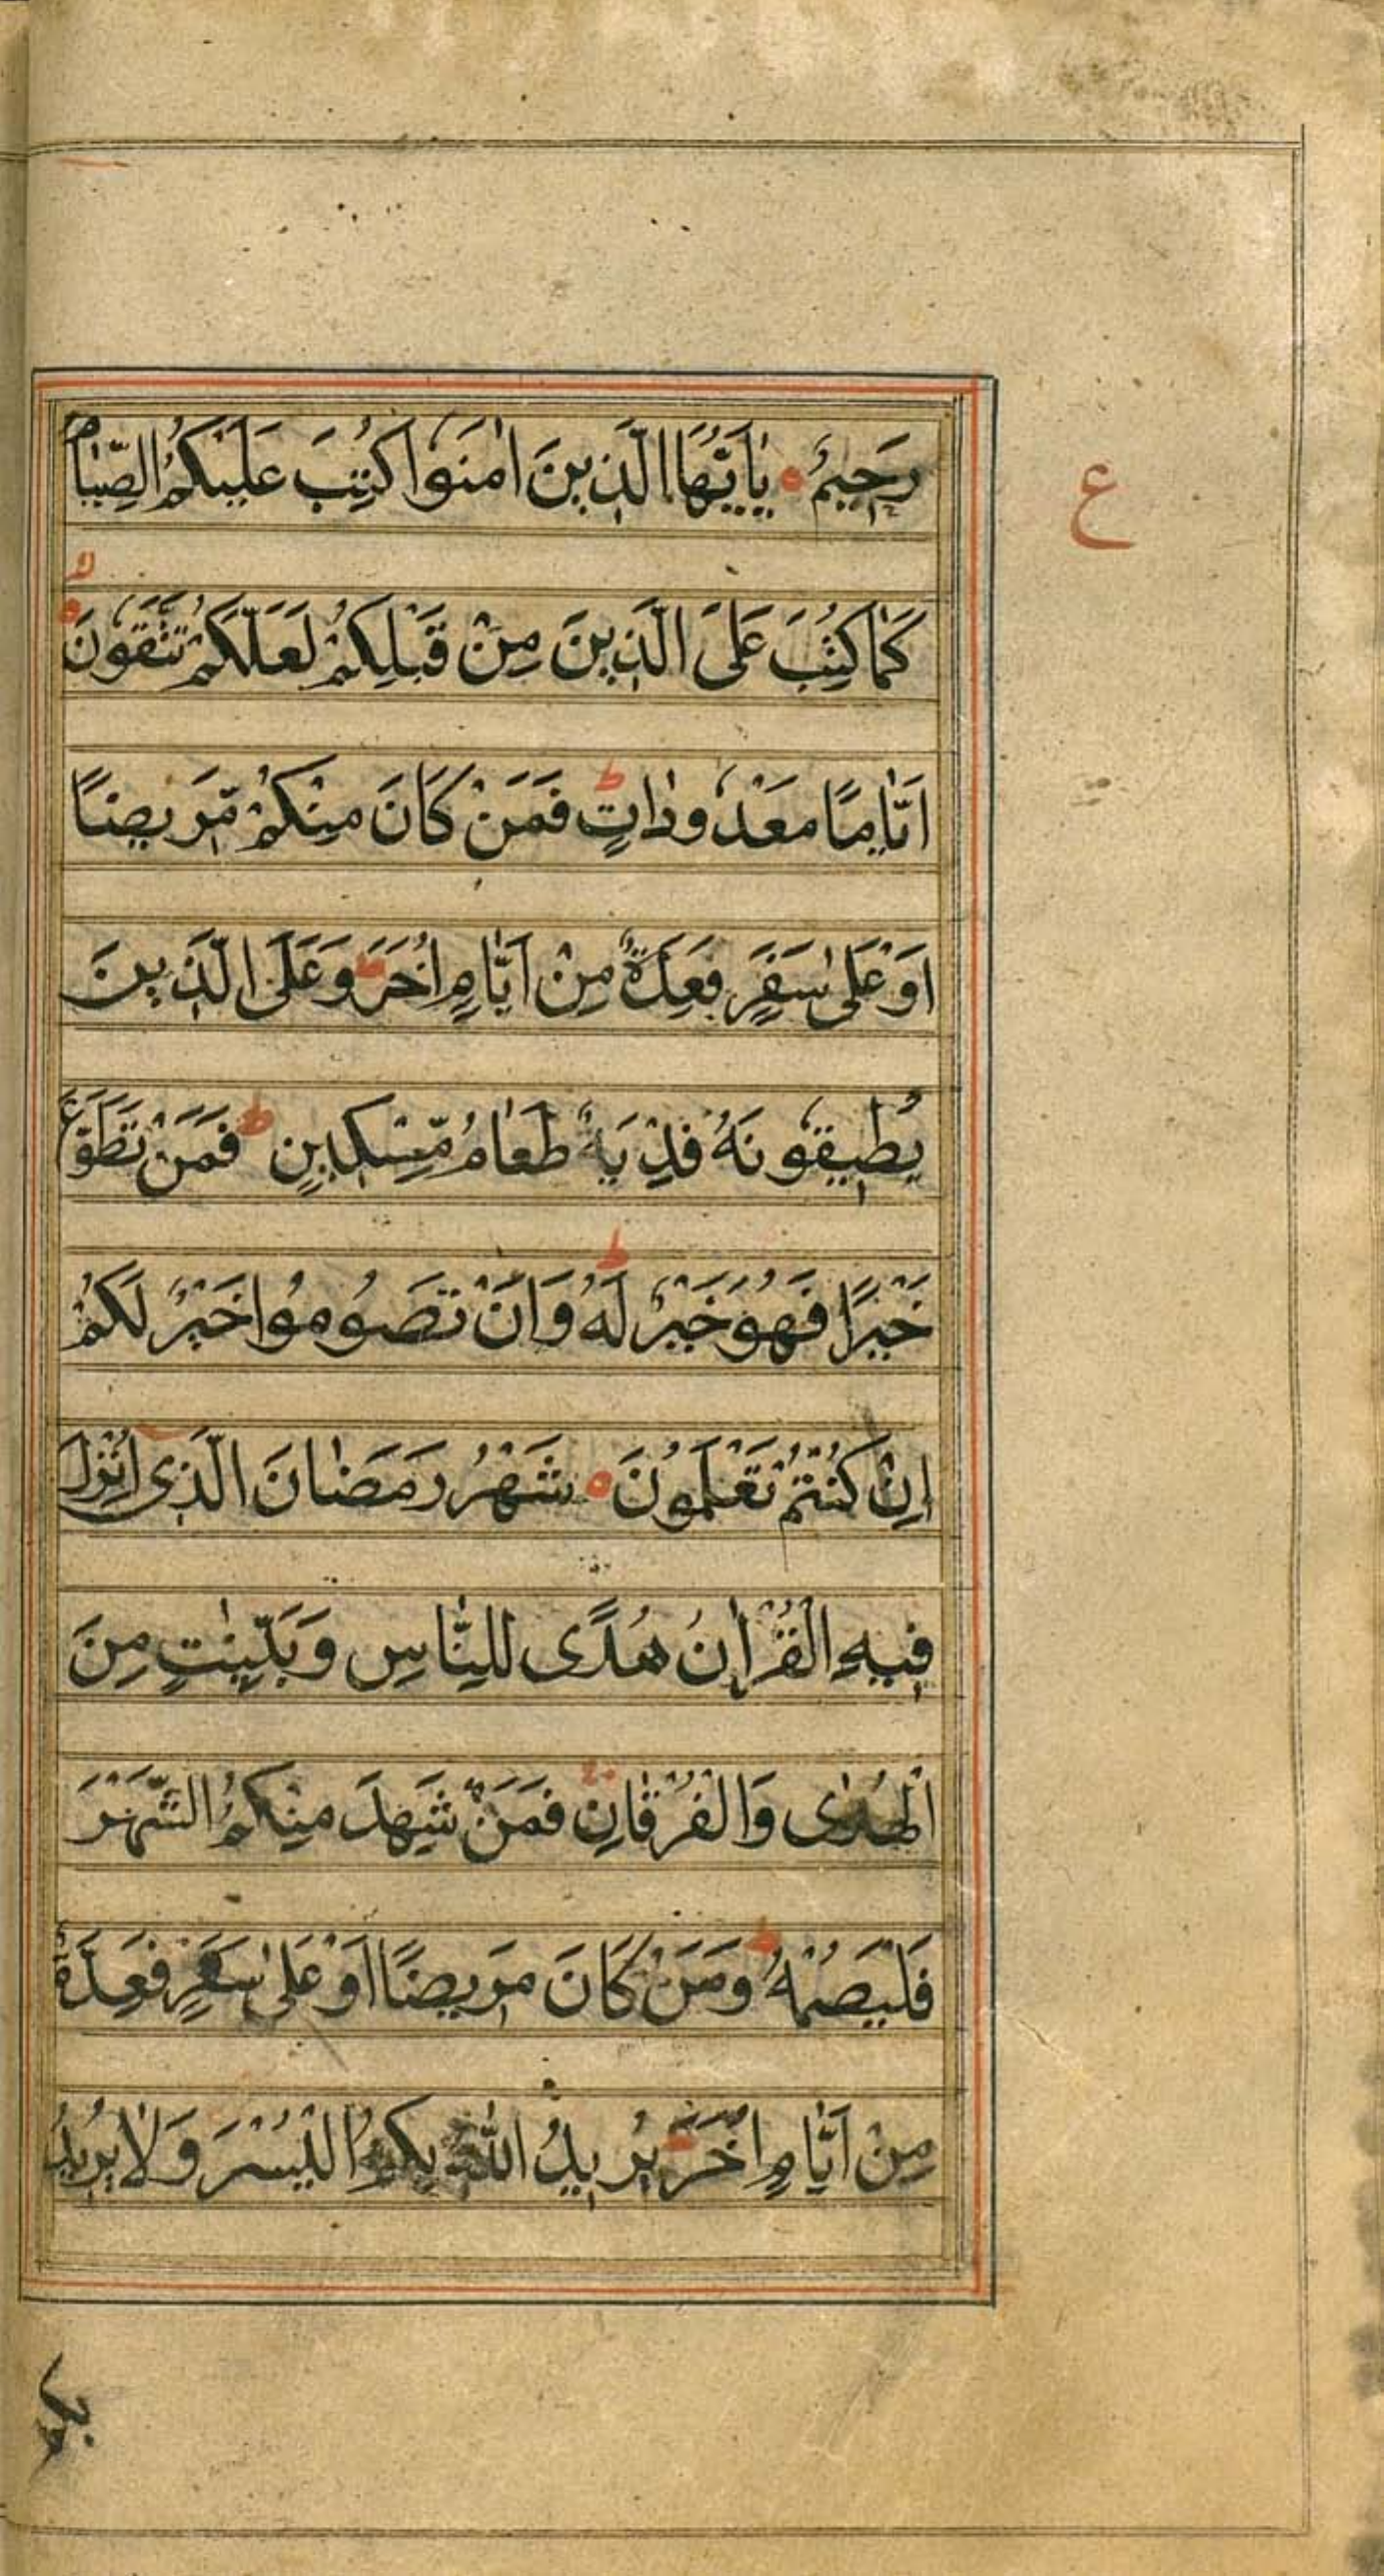 رَحِيْمٌ ۝ يٰاَيُّهَا الَّذِيْنَ اٰمَنُوْا كُتِبَ عَلَيْكُمُ الصِّيَامُ
ع
لا
كَمَا كُتِبَ عَلَى الَّذِيْنَ مِنْ قَبْلِكُمْ لَعَلَّكُمْ تَتَّقُوْنَ ۝
اَيَّامًا مَعْدُوْدَاتٍ ط فَمَنْ كَانَ مِنْكُمْ مَّرِيضًا
اَوْ عَلٰى سَفَرٍ فَعِدَةٌ مِنْ اَيَّامٍ اُخَرَ ط وَعَلَى الَّذِيْنَ
يُطِيقُوْنَهُ فِدْيَةٌ طَعَامُ مِّسْكِيْنٍ ط فَمَنْ تَطَوَّعَ
خَيْرًا فَهُوَ خَيْرٌ لَهُ ط وَاَنْ تَصُومُوا خَيْرٌ لَكُمْ
اِنْ كُنْتُمْ تَعْلَمُونَ ۝ شَهْرُ رَمَضَانَ الَّذِىْ اُنْزِلَ
فِيهِ الْقُرْاٰنُ هُدًى لِلنَّاسِ وَبَيِّنٰتٍ مِنَ
الْهُدٰى وَالْفُرْقَانِ فَمَنْ شَهِدَ مِنْكُمُ الشَّهْرَ
فَلْيَصُمْهُ ط وَمَنْ كَانَ مَرِيضًا اَوْ عَلٰى سَفَرٍ فَعِدَّةٌ
مِنْ اَيَّامٍ اُخَرَ ط يُرِيدُ اللّٰهُ بِكُمُ الْيُسْرَ وَلَا يُرِيدُ
بكم